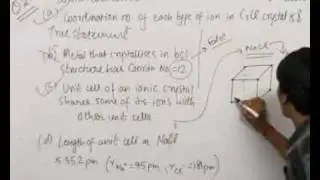 (a) Coordination no. of each type of ion in CsCl crystal is 8
True statement
(b) Metal that crystallises in bcc
structure has Coordn No = 12
False
NaCl
(c) Unit cell of an ionic crystal
shares some of its ions with
other unit cells
(d) Length of unit cell in NaCl
is 552 pm (rNa+ = 95 pm, rCl- = 181 pm)